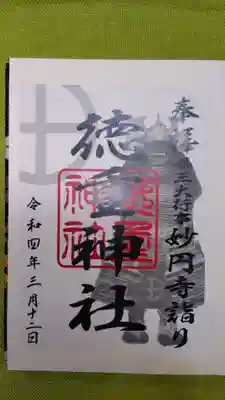 奉拝
三大行事 妙円寺詣り
徳重神社
令和四年三月十二日